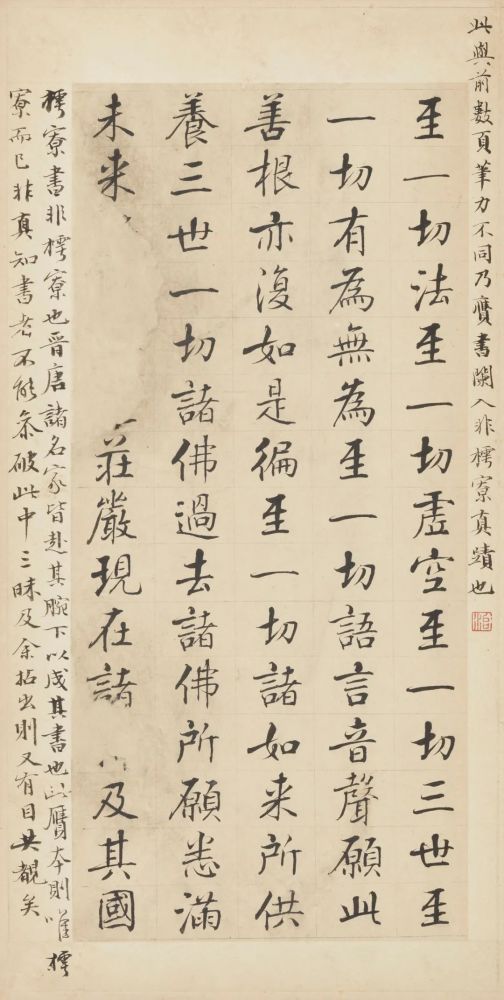 此與前數頁筆力不同乃贗書闌入非樗寮真蹟也
至一切法至一切虛空至一切三世至
一切有為無為至一切語言音聲願此
善根亦復如是徧至一切諸如来所供
養三世一切諸佛過去諸佛所願悉滿
未来莊嚴現在諸及其國
樗寮書非樗寮也晉唐諸名家皆赴其腕下以成其書也此贗本則唯樗
寮而已非真知書者不能參破此中三昧及余拈出則又有目共覩矣